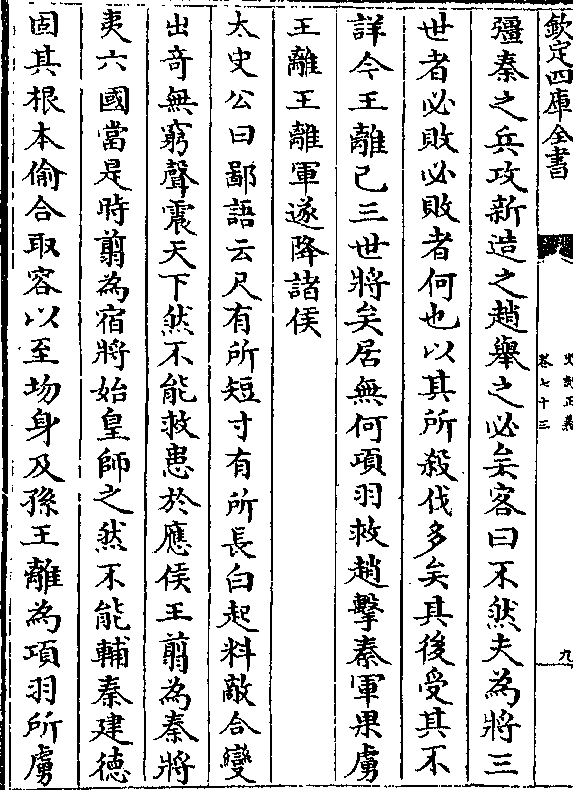 欽定四庫全書
史記正義
卷七十三
九
彊秦之兵攻新造之趙舉之必矣客曰不然夫為將三
世者必敗必敗者何也以其所殺伐多矣其後受其不
詳今王離已三世將矣居無何項羽救趙擊秦軍果虜
王離王離軍遂降諸侯
太史公曰鄙語云尺有所短寸有所長白起料敵合變
出竒無窮聲震天下然不能救患於應侯王翦為秦將
夷六國當是時翦為宿將始皇師之然不能輔秦建德
固其根本偷合取容以至圽身及孫王離為項羽所虜